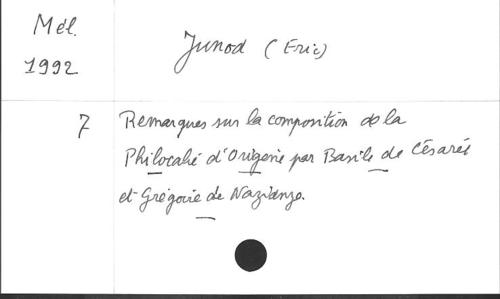 Mél.
1992
Junod (Eric)
7
Remarques sur la composition de la
Philocalie d'Origène par Basile de Césarée
et Grégoire de Nazianze.